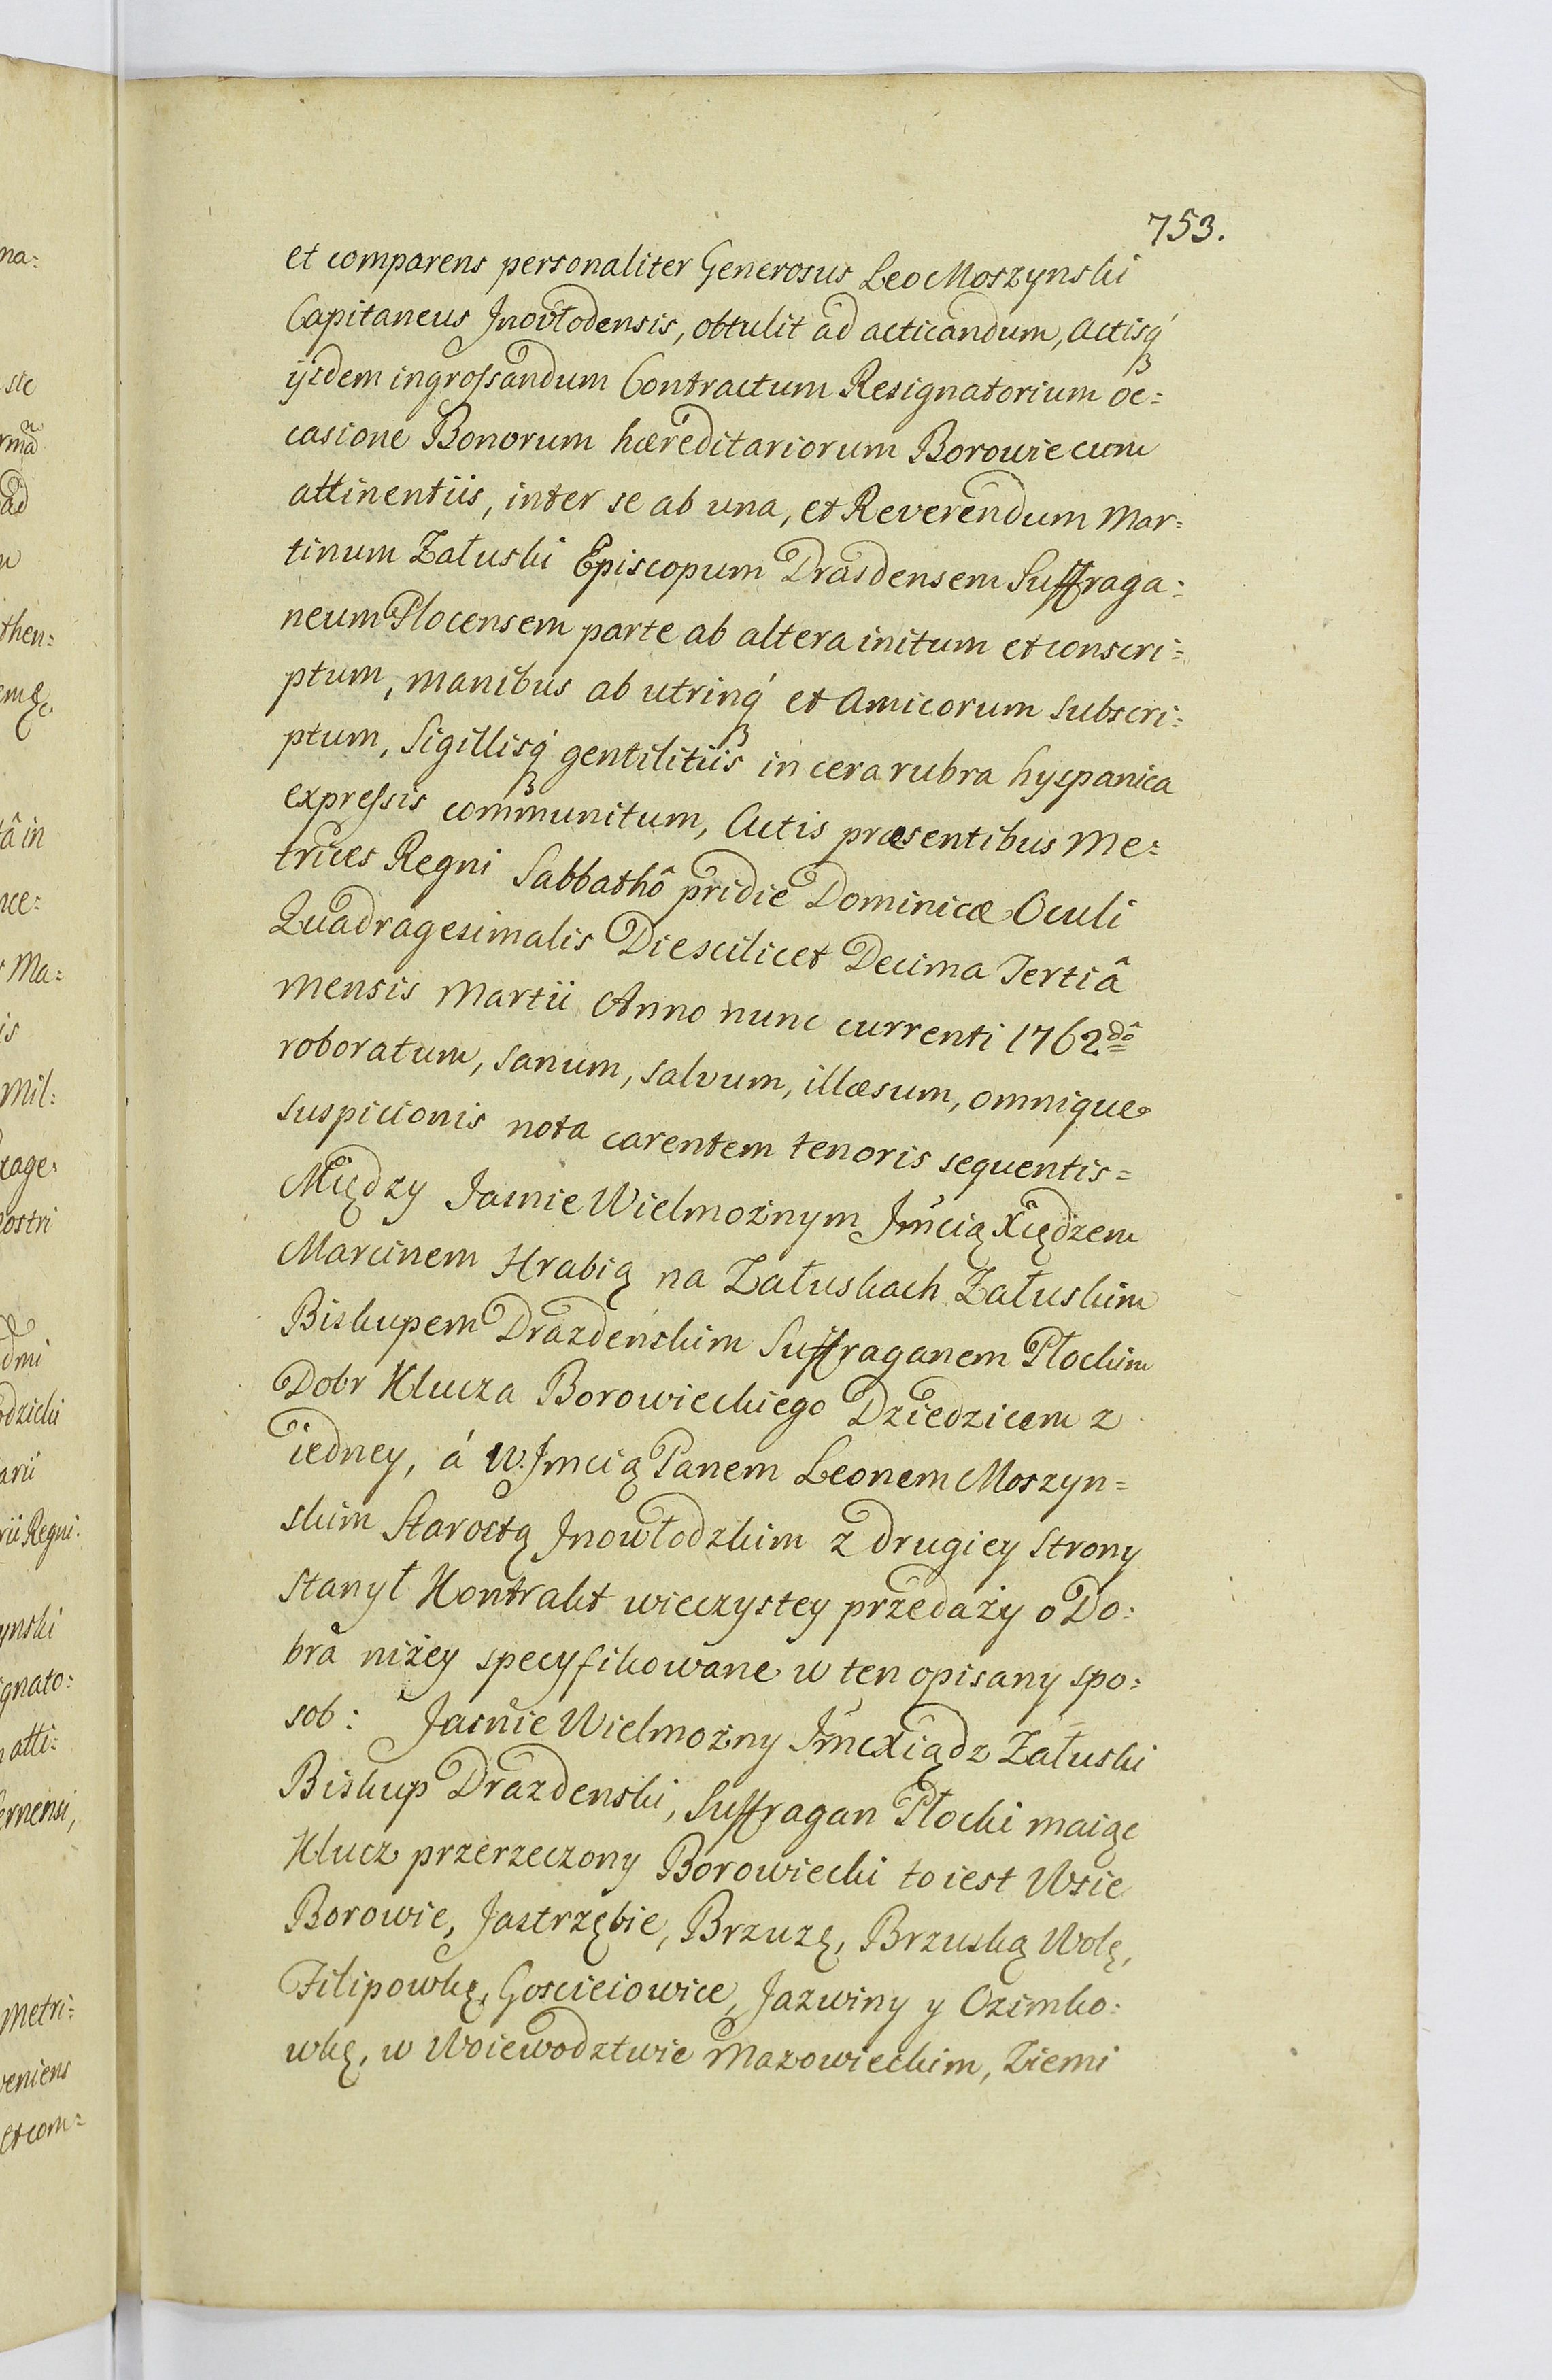 753.
et comparens personaliter Generosus Leo Moszynski
Capitaneus Jnovłodensis, obtulit ad acticandum, Actisq́
ijsdem ingrossandum Contractum Resignatorium oc=
casione Bonorum hæreditariorum Borowie cum
attinentiis, inter se ab una, et Reverendum Mar=
tinum Załuski Episcopum Drasdensem Suffraga=
neum Plocensem parte ab altera initum et conscri=
ptum, manibus ab utrinq́ et Amicorum subscri=
ptum, Sigillisq́ gentilitiis in cera rubra hyspanica
expressis communitum, Actis præsentibus Me=
trices Regni Sabbathô pridie Dominicæ Oculi
Quadragesimalis Die scilicet Decima Tertiâ
mensis Martii Anno nunc currenti 1762dô
roboratum, sanum, salvum, illæsum, omnique
suspicionis nota carentem tenoris sequentis=
Między Jasnie Wielmożnym Jmcią Xiędzem
Marcinem Hrabią na Załuskach Załuskim
Biskupem Drazdeńskim Suffraganem Płockim
Dobr Klucza Borowieckiego Dziedzicem z
iedney, á W. Jmcią Panem Leonem Moszyn=
skim Starostą Jnowłodzkim z drugiey strony
stanył Kontrakt wieczystey przedaży o Do=
bra niżey specyfikowane w ten opisany spo=
sob: Jaśnie Wielmożny JmcXiądz Załuski
Biskup Drazdenski, Suffragan Płocki maiąc
Klucz przerzeczony Borowiecki to iest Wsie
Borowie, Jastrzębie, Brzuzę, Brzuską Wolę,
Filipowkę, Gosciciowice, Jazwiny y Ozimko=
wkę, w Woiewodztwie Mazowieckim, Ziemi